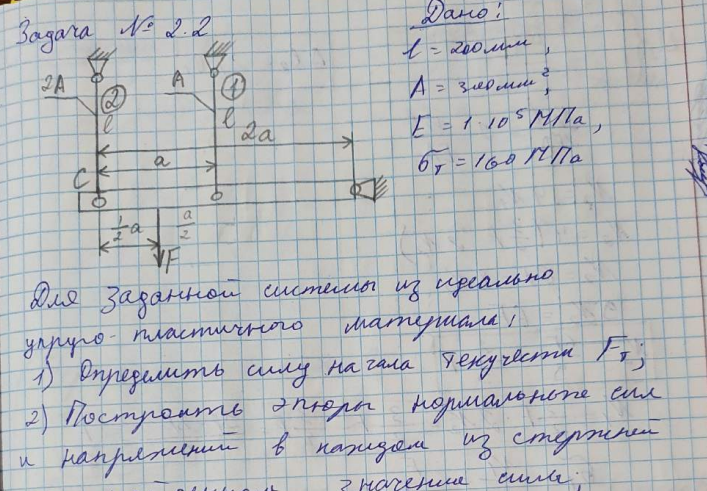 Задача № 2.2
Дано:
l = 200мм,
A = 300мм²,
E = 1·10⁵ МПа,
σт = 160 МПа
2A
②
l
A
①
l
2a
a
C
½a
a/2
F
Для заданной системы из идеально
упруго-пластичного материала:
1) Определить силу начала текучести Fт;
2) Построить эпюры нормальные сил
и напряжений в каждом из стержней
значение силы;